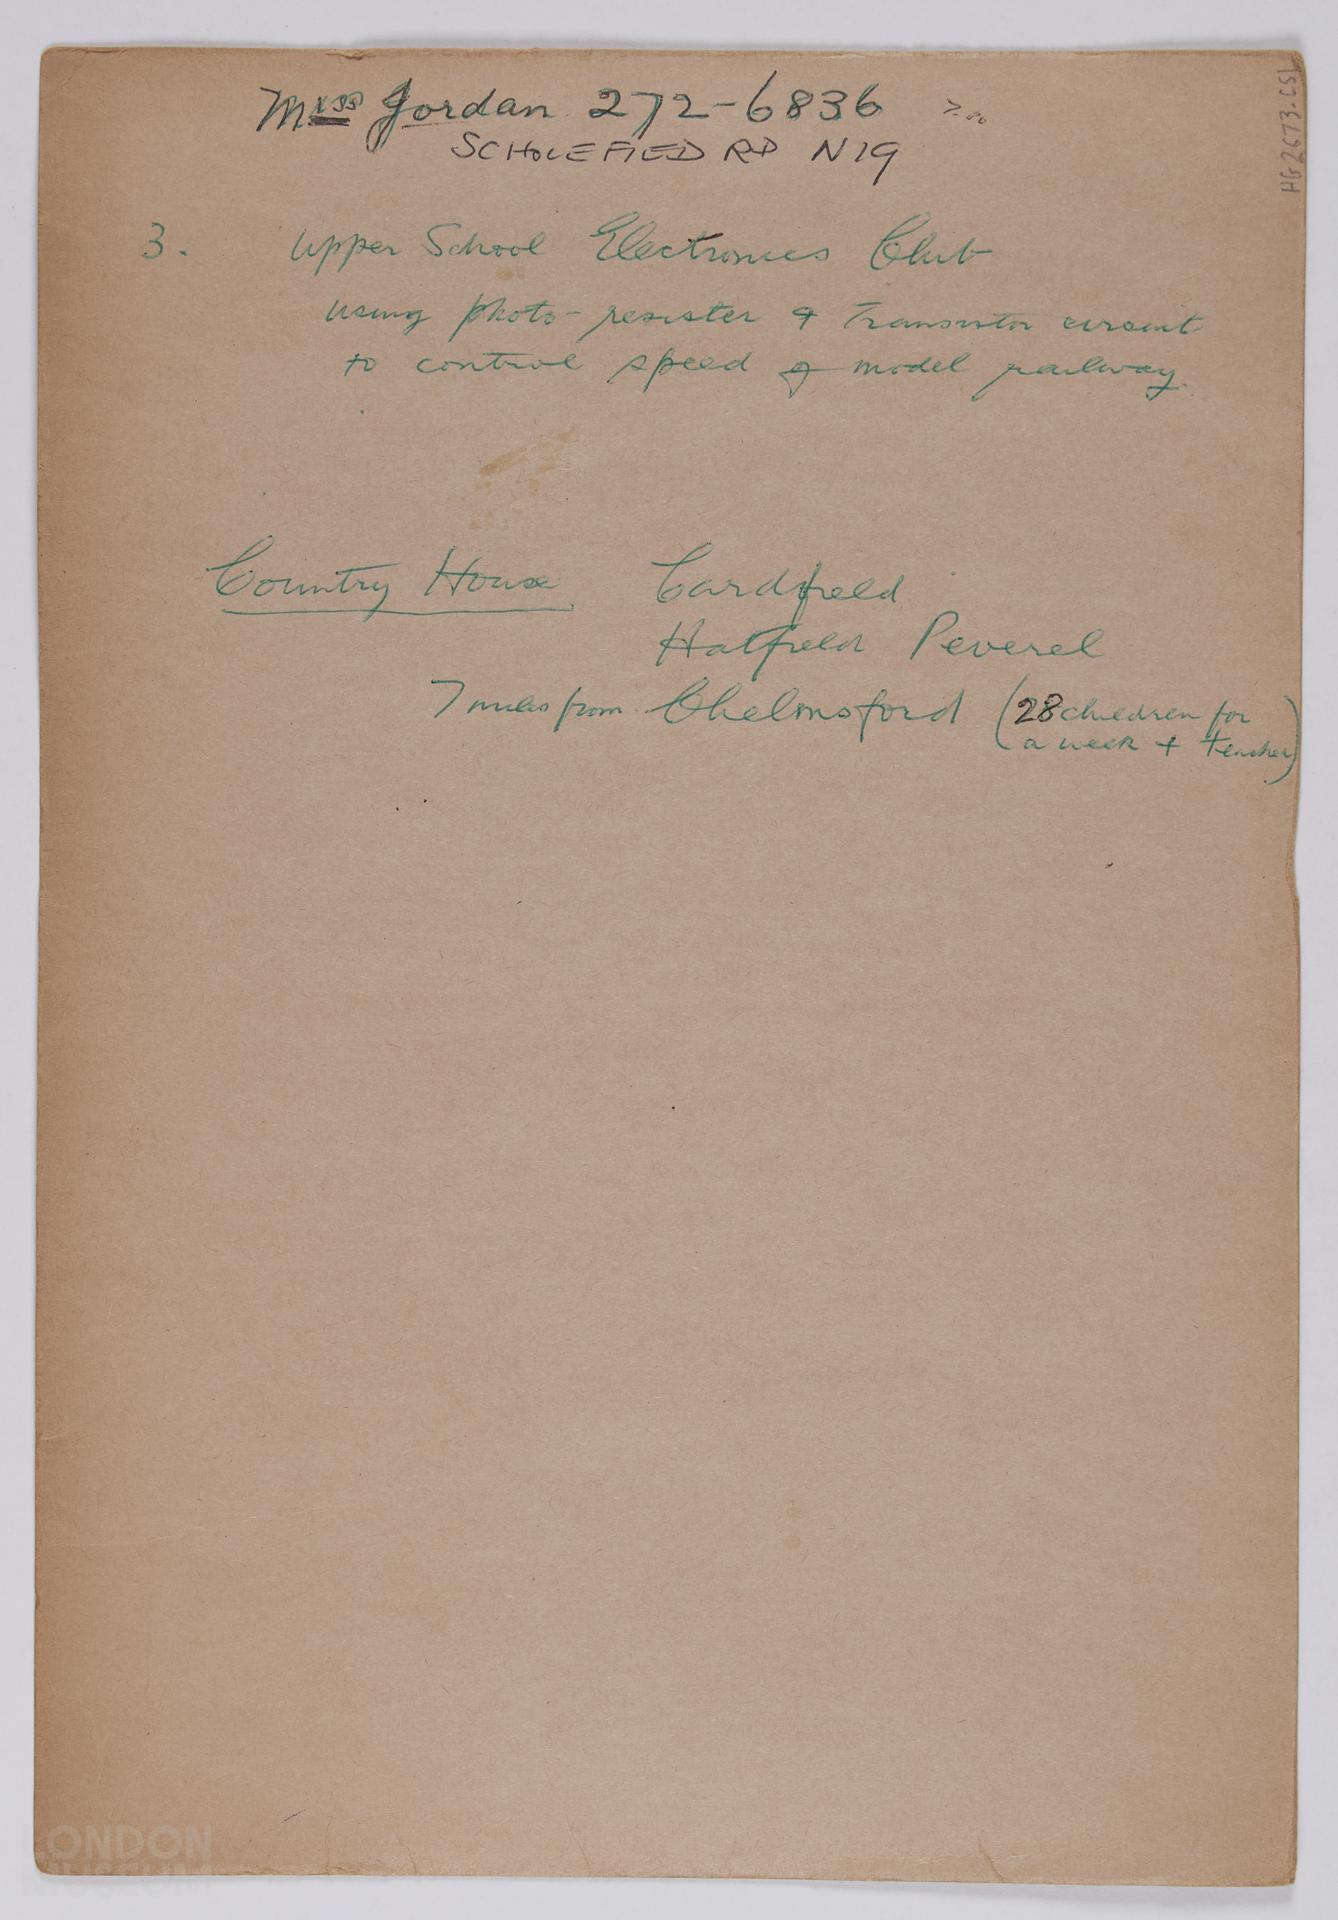 Miss Jordan 272-6836 7.00
SCHOLEFIELD RD N19
HG2673.CS1
3. Upper School Electronics Club
using photo-resister & Transistor circuit
to control speed of model railway.
Country House Cardfield
Hatfield Peverel
7 miles from Chelmsford (28 children for
a week + teacher)
LONDON
MUSEUM